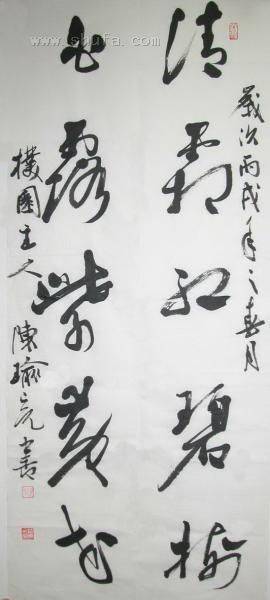 歲次丙戌年之春月
清霜紅碧樹
白露紫黃花
樸園主人 陳瑜 書
shufa.com